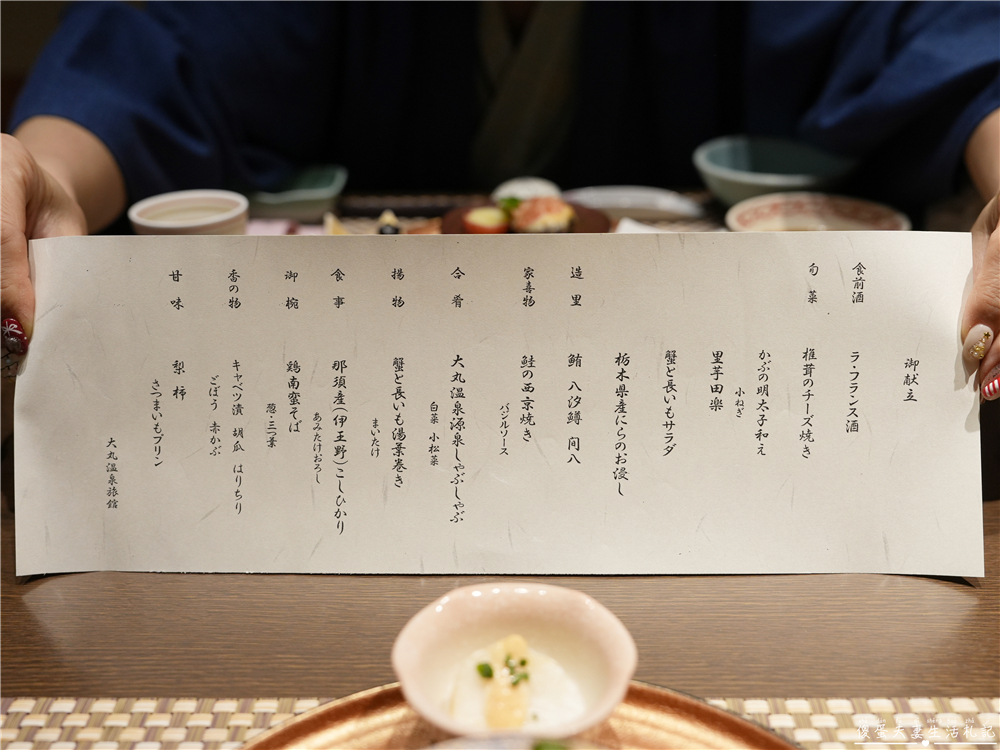 御献立
食前酒 ラ・フランス酒
旬菜 椎茸のチーズ焼き
かぶの明太子和え
小ねぎ
里芋田楽
蟹と長いもサラダ
栃木県産にらのお浸し
造里 鮪 八汐鱒 間八
家喜物 鮭の西京焼き
バジルソース
合肴 大丸温泉源泉しゃぶしゃぶ
白菜 小松菜
揚物 蟹と長いも湯葉巻き
まいたけ
食事 那須産(伊王野)こしひかり
あみたけおろし
御椀 鶏南蛮そば
葱・三つ葉
香の物 キャベツ漬 胡瓜 はりちり
ごぼう 赤かぶ
甘味 梨 柿
さつまいもプリン
大丸温泉旅館
傻蛋夫妻生活札記